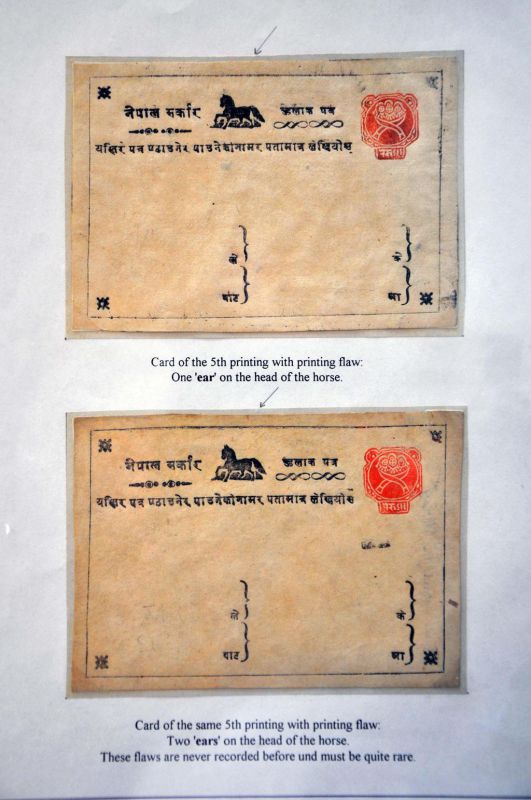 नेपाल सर्कार
हुलाक पत्र
यस्भित्र पत्र पठाउनेर पाउनेकोनामर पतामात्र लेखियोस्
बाट
मा
Card of the 5th printing with printing flaw:
One 'ear' on the head of the horse.
नेपाल सर्कार
हुलाक पत्र
यस्भित्र पत्र पठाउनेर पाउनेकोनामर पतामात्र लेखियोस्
बाट
मा
Card of the same 5th printing with printing flaw:
Two 'ears' on the head of the horse.
These flaws are never recorded before und must be quite rare.